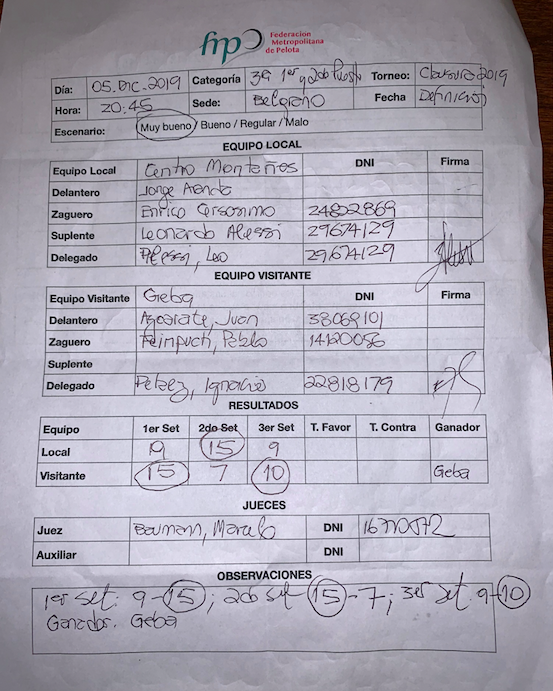 fmp Federacion
Metropolitana
de Pelota
Día: 05.Dic.2019 Categoría 3ª 1er y 2do Puesto Torneo: Clausura 2019
Hora: 20:45 Sede: Belgrano Fecha Definición
Escenario: Muy bueno / Bueno / Regular / Malo
EQUIPO LOCAL
Equipo Local Centro Montañes DNI Firma
Delantero Jorge
Zaguero Enrico 24802869
Suplente Leonardo Alessi 29674129
Delegado Alessi, Leo 29.674129
EQUIPO VISITANTE
Equipo Visitante Geba DNI Firma
Delantero Juan 38069101
Zaguero Pablo 14120056
Suplente
Delegado Pelaez, Ignacio 22818179
RESULTADOS
Equipo 1er Set 2do Set 3er Set T. Favor T. Contra Ganador
Local 9 15 9
Visitante 15 7 10 Geba
JUECES
Juez Baumann, Marcelo DNI
Auxiliar DNI
OBSERVACIONES
1er set: 9-15; 2do set 15-7; 3er set: 9-10
Ganador. Geba